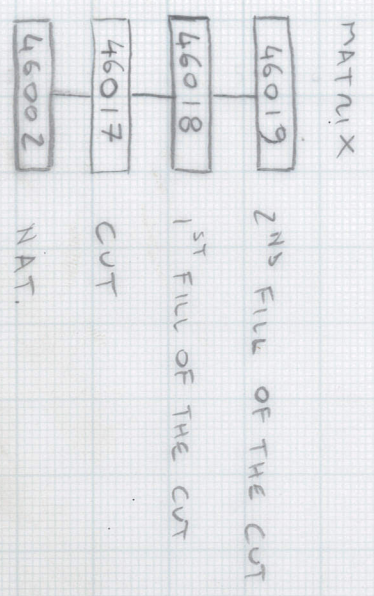 MATRIX
46019 2ND FILL OF THE CUT
46018 1ST FILL OF THE CUT
46017 CUT
46002 NAT.